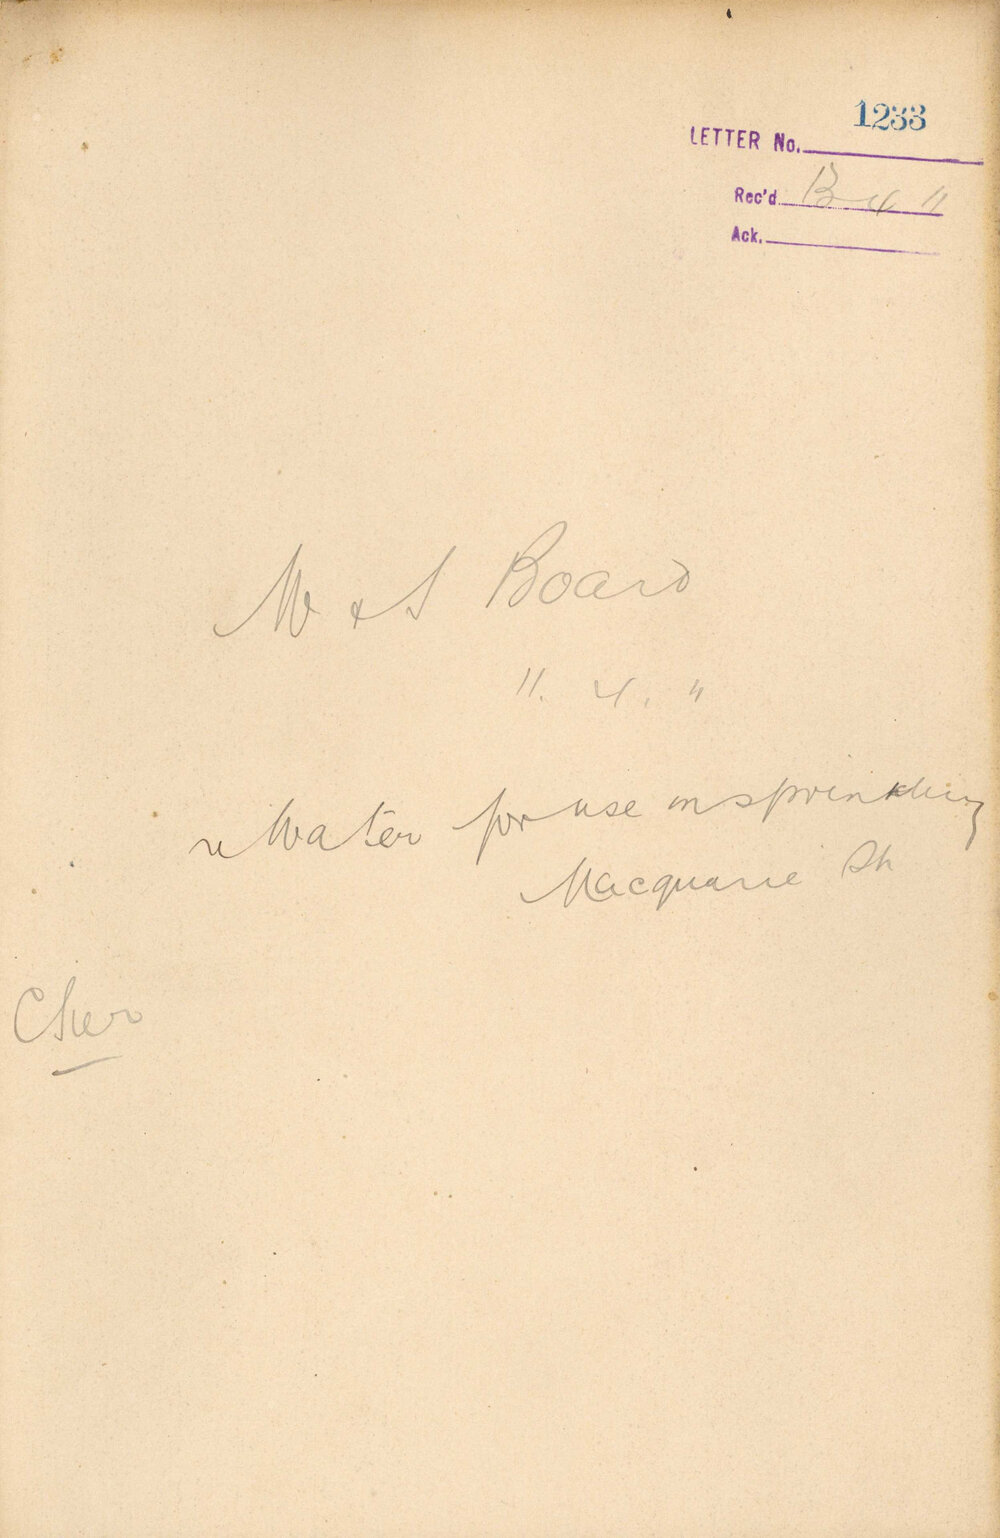 1233
LETTER No.
Rec'd B 4 11
Ack.
W & S Board
11. 4. 11
re Water for use in sprinkling
Macquarie St